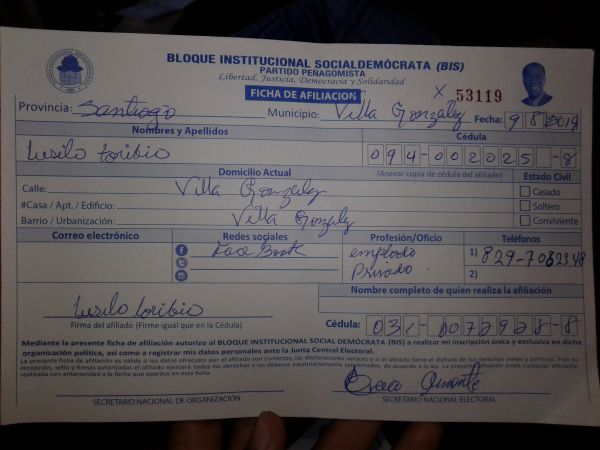 BLOQUE INSTITUCIONAL SOCIALDEMÓCRATA (BIS)
PARTIDO PEÑAGOMISTA
Libertad, Justicia, Democracia y Solidaridad
FICHA DE AFILIACION
X 53119
Provincia: Santiago Municipio: Villa Gonzalez Fecha: 9 8 2019
Nombres y Apellidos Cédula
Lusilo toribio 094-002025-8
Domicilio Actual (Anexar copia de cédula del afiliado) Estado Civil
Calle: Villa Gonzalez Casado
#Casa / Apt. / Edificio: Soltero
Barrio / Urbanización: Villa Gonzalez Conviviente
Correo electrónico Redes sociales Profesión/Oficio Teléfonos
Face Book emplado 1) 829-7082348
Privado 2)
Nombre completo de quien realiza la afiliación
Lusilo toribio
Firma del afiliado (Firme igual que en la Cédula) Cédula: 031-0072928-8
Mediante la presente ficha de afiliación autorizo al BLOQUE INSTITUCIONAL SOCIAL DEMÓCRATA (BIS) a realizar mi inscripción única y exclusiva en dicha
organización política, así como a registrar mis datos personales ante la Junta Central Electoral.
La presente ficha de afiliación es válida si los datos ofrecidos por el afiliado son correctos, las declaraciones versces y si el afiliado tiene el disfrute de sus derechos civiles y políticos. Tras su
recepción, sello y firmas autorizadas el afiliado ejercerá todos los derechos y los deberes estatutariamente sancionados, de acuerdo a la ley. La presente afiliación anula cualquier afiliación
realizada con anterioridad a la fecha que aparece en esta ficha.
SECRETARIO NACIONAL DE ORGANIZACIÓN SECRETARIO NACIONAL ELECTORAL